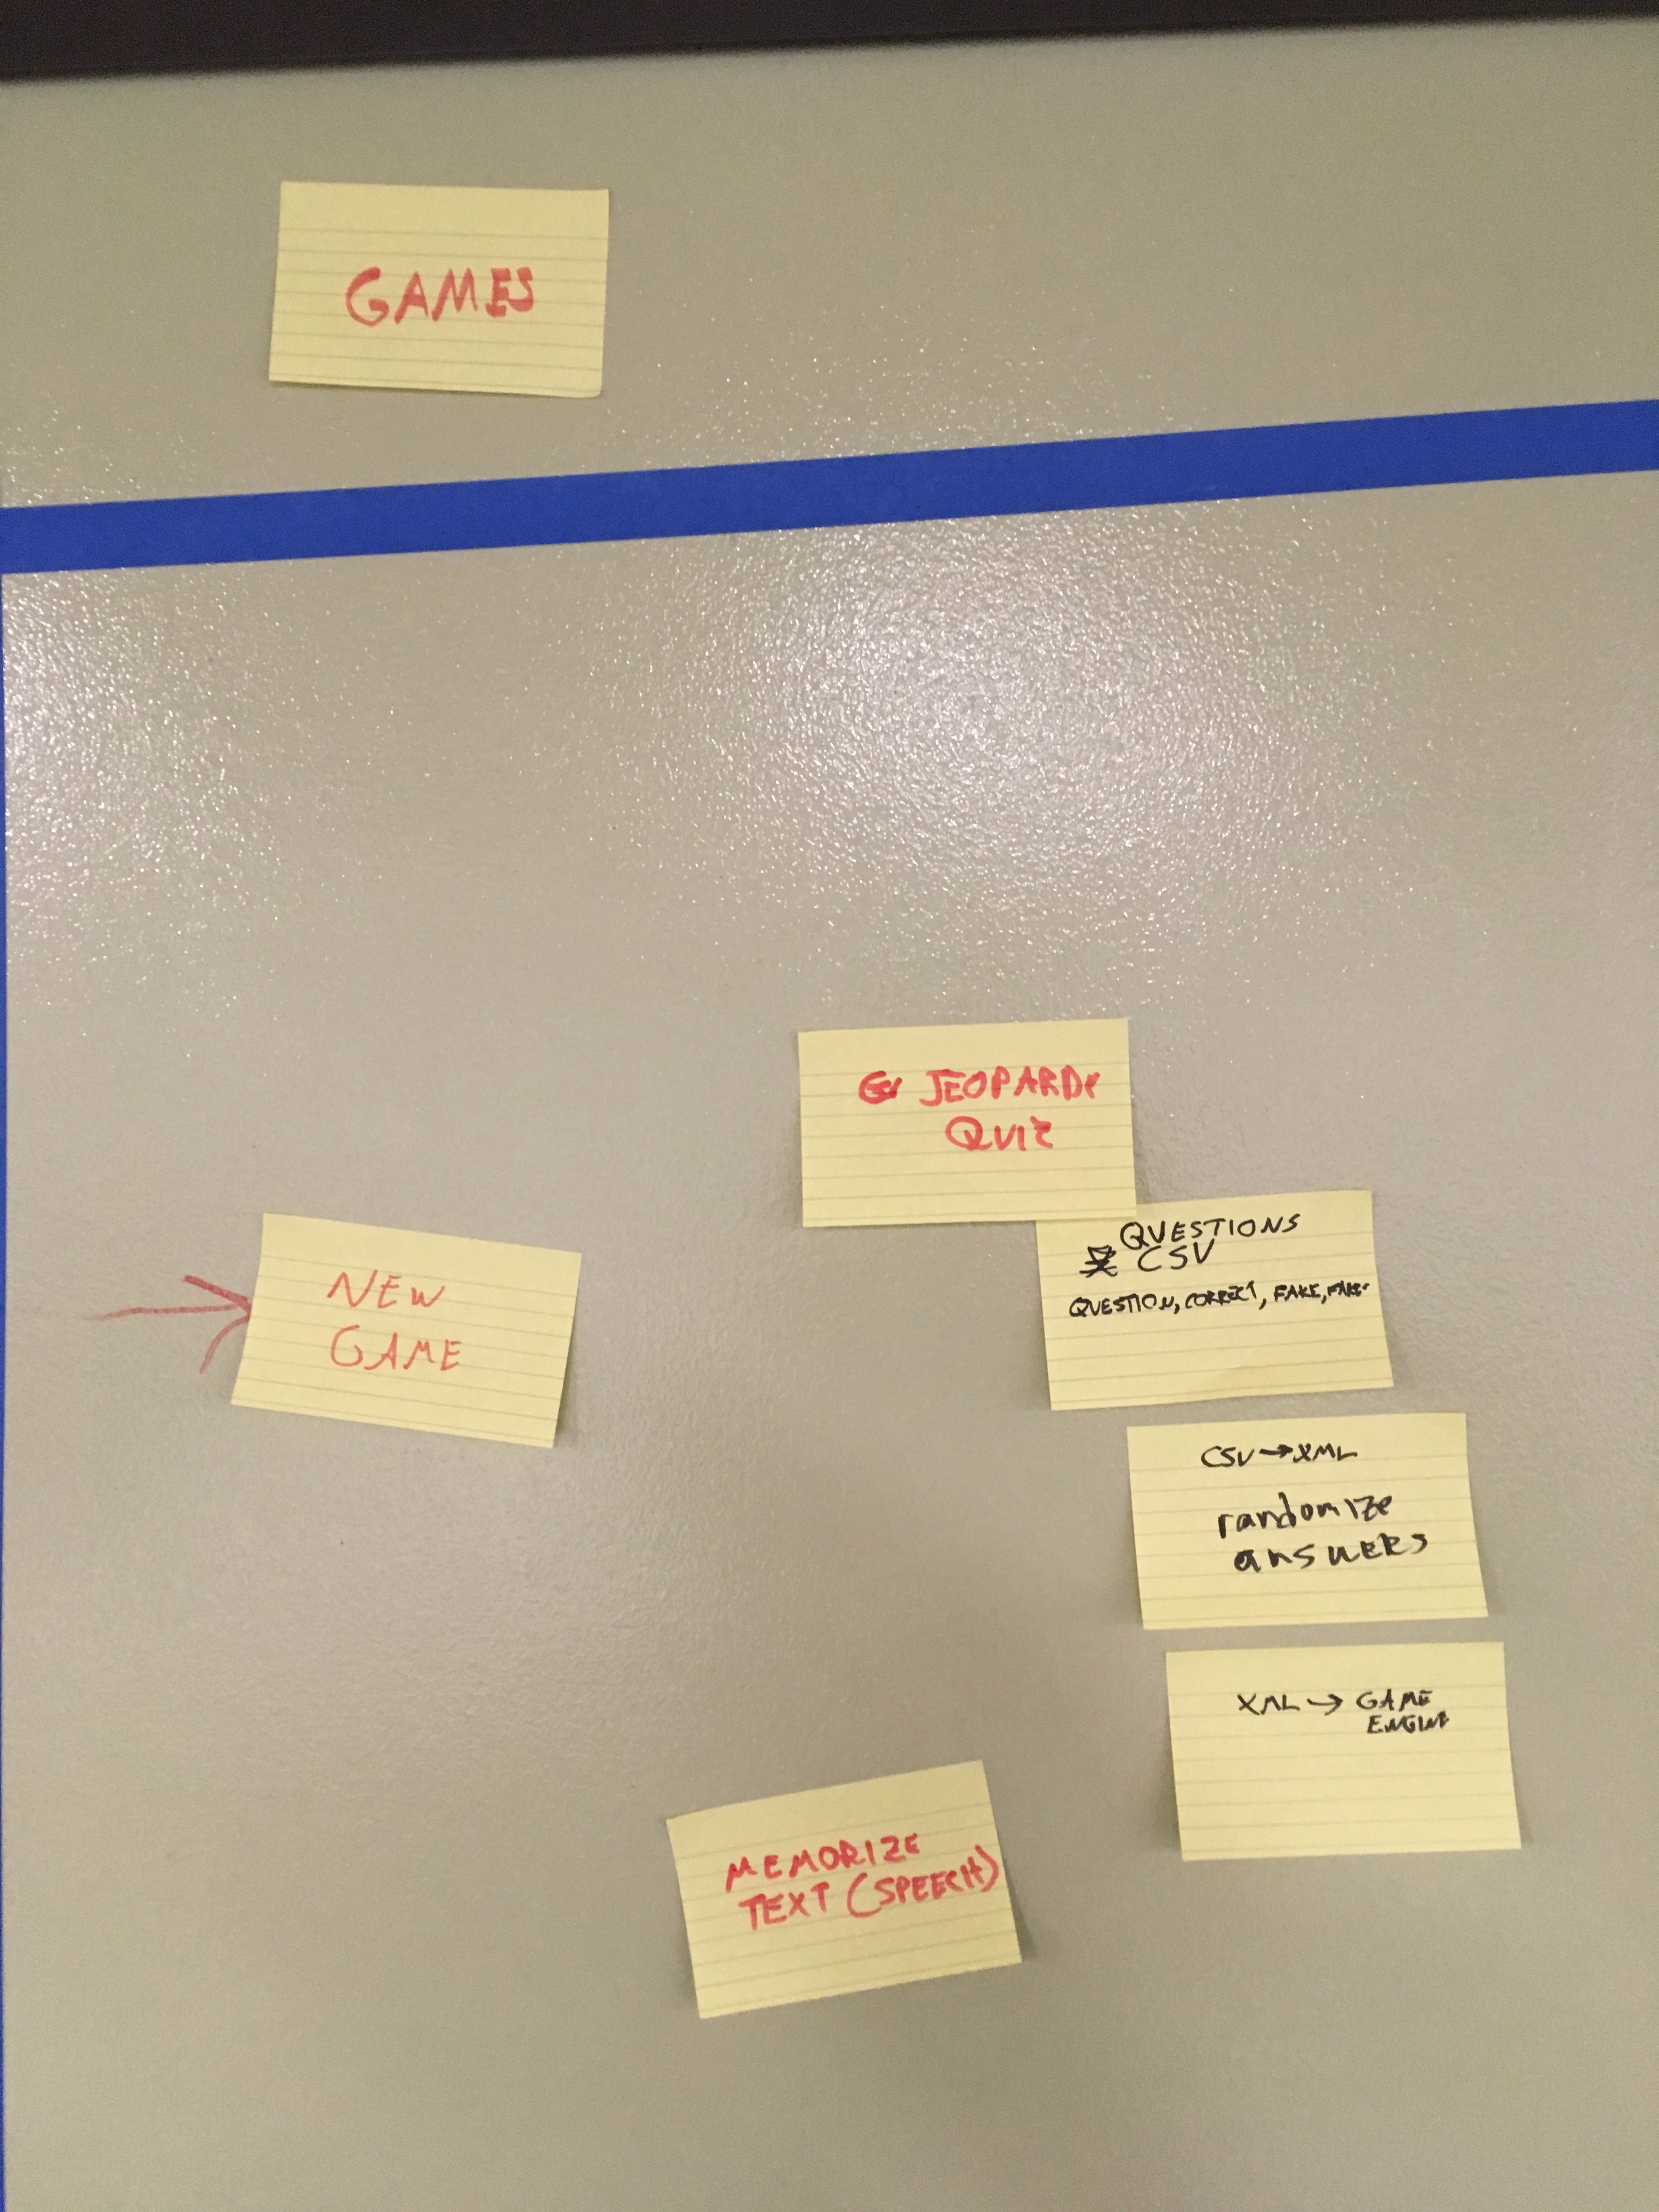 GAMES
JEOPARDY
QUIZ
QUESTIONS
CSV
QUESTION, CORRECT, FAKE, FAKE
NEW
GAME
CSV → XML
randomize
answers
XML → GAME
ENGINE
MEMORIZE
TEXT (SPEECH)